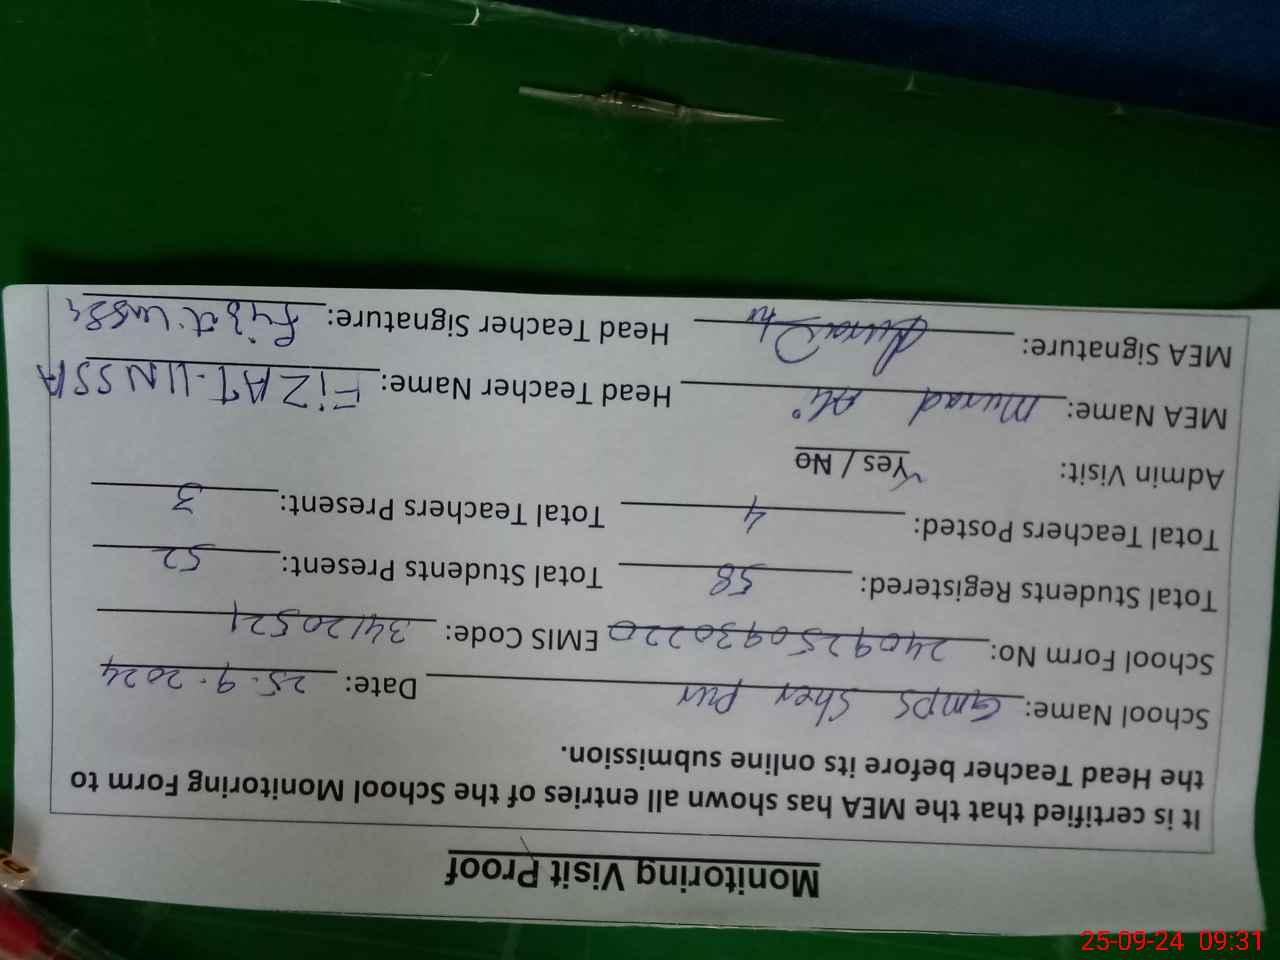 Monitoring Visit Proof
It is certified that the MEA has shown all entries of the School Monitoring Form to
the Head Teacher before its online submission.
School Name: GMPS Sher Pur Date: 25.9.2024
School Form No: 2409250930220 EMIS Code: 34120521
Total Students Registered: 58 Total Students Present: 52
Total Teachers Posted: 4 Total Teachers Present: 3
Admin Visit: Yes / No
MEA Name: Murad Ali Head Teacher Name: FiZAT-UNSSIA
MEA Signature: Head Teacher Signature:
25-09-24 09:31